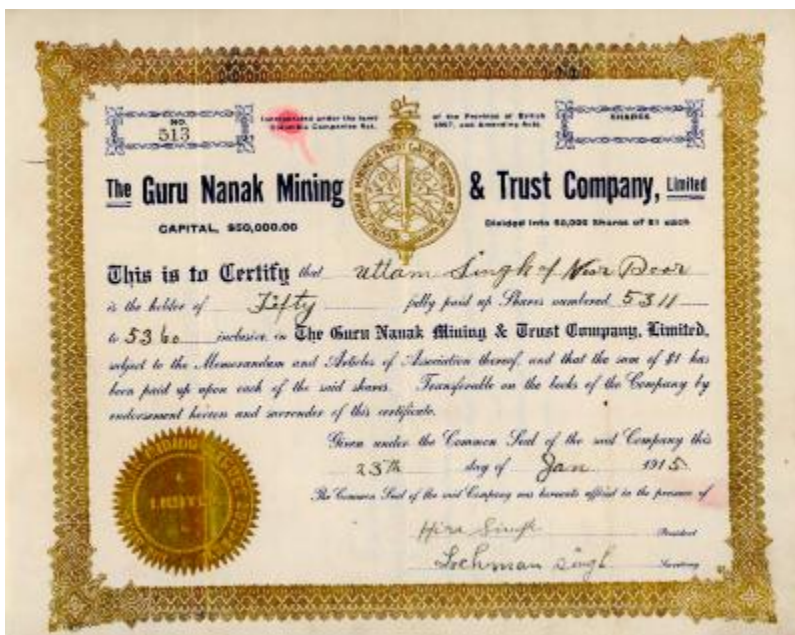 NO.
513
Incorporated under the laws of the Province of British
Columbia Companies Act, 1897, and Amending Acts.
SHARES
The Guru Nanak Mining & Trust Company, Limited
CAPITAL, $50,000.00
Divided into 50,000 Shares of $1 each
This is to Certify that Uttam Singh of
is the holder of Fifty fully paid up Shares numbered 5311
to 5360 inclusive in The Guru Nanak Mining & Trust Company, Limited,
subject to the Memorandum and Articles of Association thereof, and that the sum of $1 has
been paid up upon each of the said shares. Transferable on the books of the Company by
endorsement hereon and surrender of this certificate.
Given under the Common Seal of the said Company this
23th day of Jan 1915
The Common Seal of the said Company was hereunto affixed in the presence of
Hira Singh President
Lochman Singh Secretary